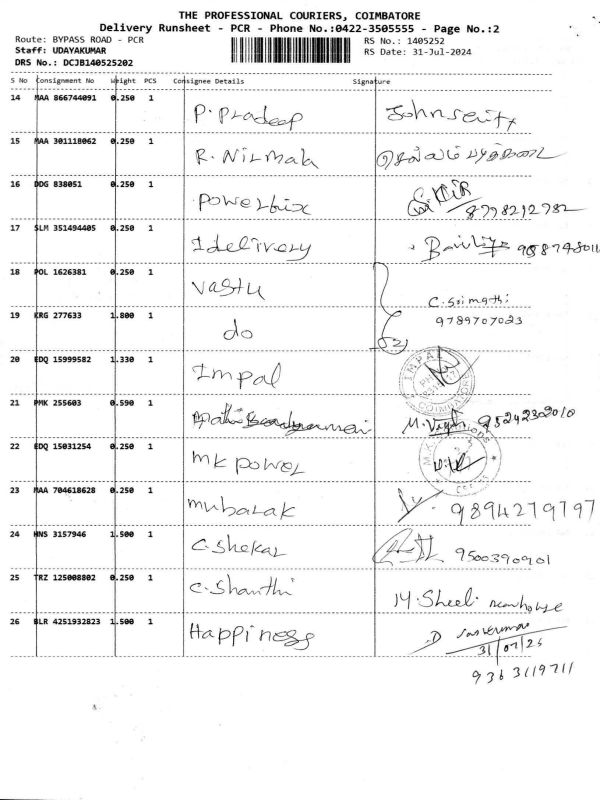 THE PROFESSIONAL COURIERS, COIMBATORE
Delivery Runsheet - PCR - Phone No.:0422-3505555 - Page No.:2
Route: BYPASS ROAD - PCR
RS No.: 1405252
Staff: UDAYAKUMAR
RS Date: 31-Jul-2024
DRS No.: DCJB140525202
S No Consignment No Weight PCS Consignee Details Signature
14 MAA 866744091 0.250 1 P. Pradeep
15 MAA 301118062 0.250 1 R. Nirmala
16 DDG 838051 0.250 1 Powerfix
8798212782
17 SLM 351494405 0.250 1 Idelivery
18 POL 1626381 0.250 1 Vastu
C. Srimathi
9789707023
19 KRG 277633 1.800 1 do
20 EDQ 15999582 1.330 1 Impal
IMPAL
COIMBATORE
21 PMK 255603 0.590 1 9524230010
22 EDQ 15031254 0.250 1 MK Power
23 MAA 704618628 0.250 1 Mubarak 9894279797
24 HNS 3157946 1.500 1 C. Shekar 9500390901
25 TRZ 125008802 0.250 1 C. Shanthi M. Sheeli
26 BLR 4251932823 1.500 1 Happiness
9363119711